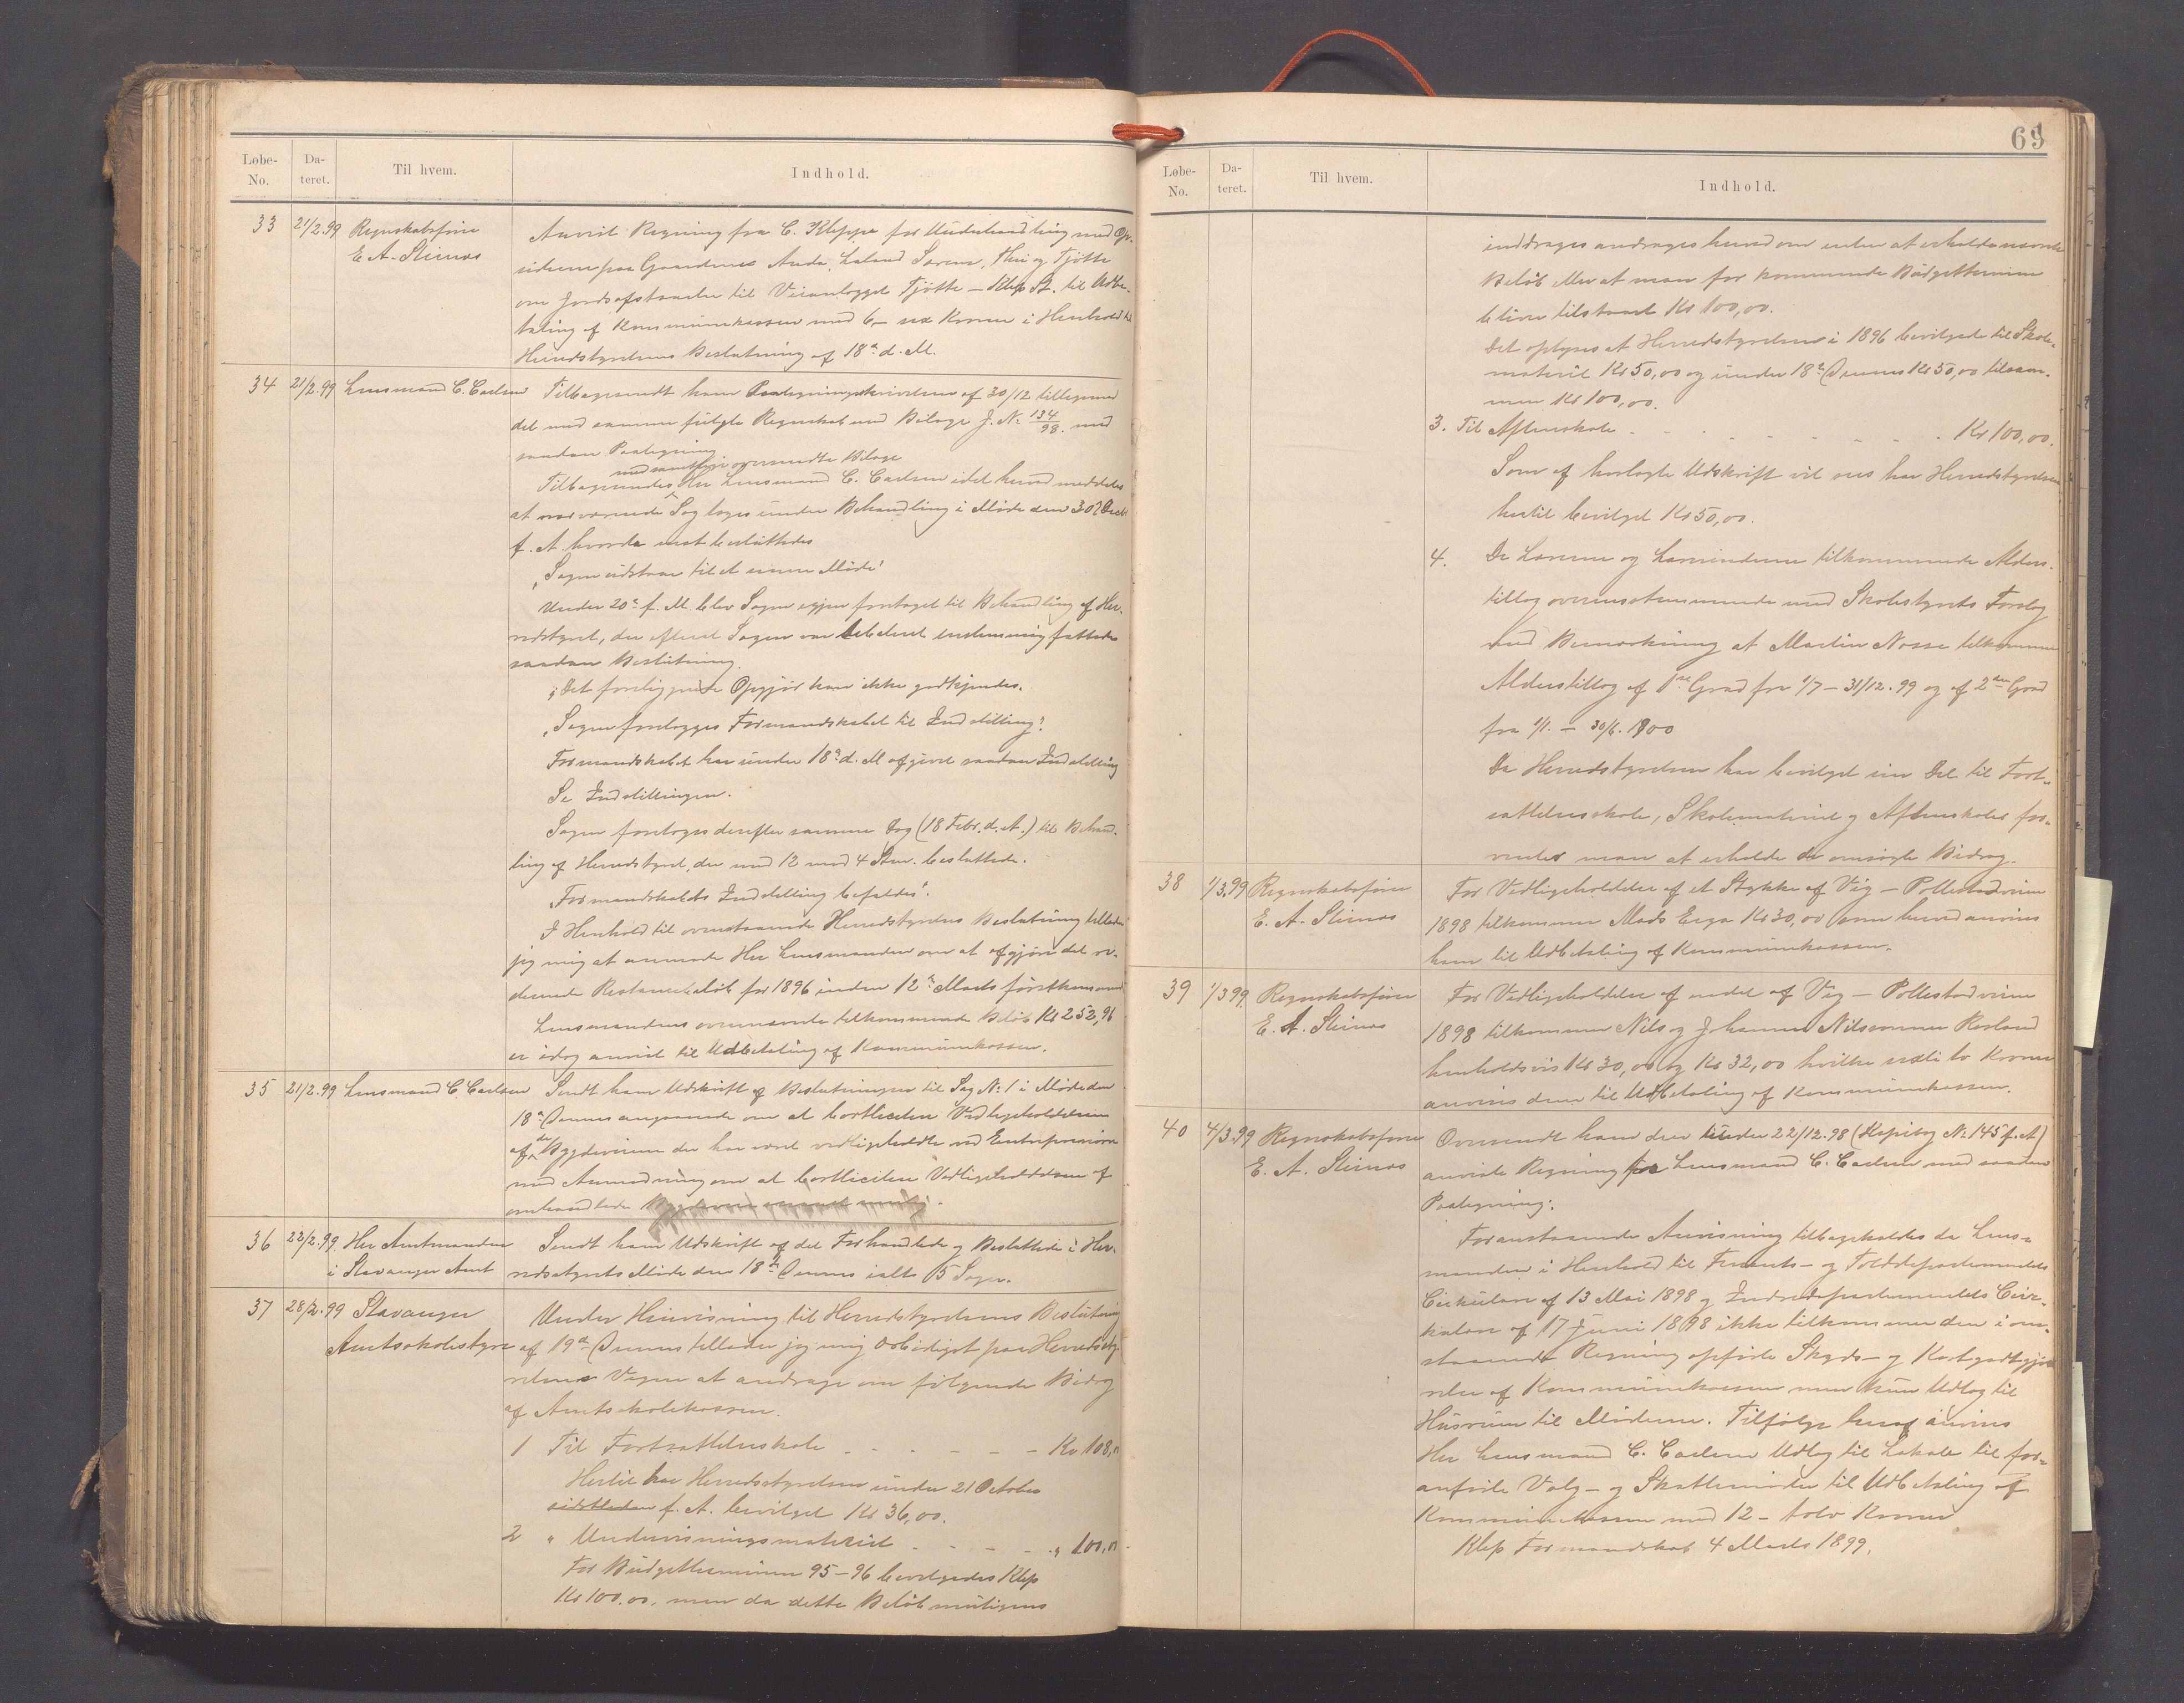 Løbe-No. Dateret. Til hvem. Indhold.
33 21/2.99 Regnskabsfører E. A. Steinnes
Anvist Regning fra C. Kleppe for Underhandling med Op-
sidderne paa Gaardene Anda, Laland Sørem, Thu og Tjøtte
om Jordafstaaelse til Veianlægget Tjøtte – Klep St. til Udbe-
taling af Kommunekassen med 6,– sex Kroner i Henhold til
Herredstyrelsens Beslutning af 18de d. M.
34 21/2.99 Lensmand C. Carlsen
Tilbagesendt ham Paategningsskrivelsen af 30/12 tilligemed
det med samme fulgte Regnskab med Bilage J. No 134/98. med
saadan Paategning
med samtlige oversendte Bilage
Tilbagesendes Hr Lensmand C. Carlsen idet herved meddeles
at nærværende Sag toges under Behandling i Møde den 30te Decbr
f. A. hvorda enst besluttedes
„Sagen udstaar til et senere Møde“
Under 20de f. M. blev Sagen igjen foretaget til Behandling af Her-
redstyret, der efterat Sagen var debateret enstemmig fattede
saadan Beslutning.
„Det foreliggende Opgjør kan ikke godkjendes.
„Sagen forelægges Formandskabet til Indstilling“.
Formandskabet har under 18de d. M afgivet saadan Indstilling
Se Indstillingen.
Sagen foretoges derefter samme Dag (18 Febr. d. A.) til Behand-
ling af Herredstyret, der med 12 mod 4 Stem. besluttede.
Formandskabets Indstilling bifaldes“.
I Henhold til ovenstaaende Herredstyrelses Beslutning tillader
jeg mig at anmode Hr Lensmanden om at afgjøre det re-
sterende Restancebeløb for 1896 inden 12te Marts førstkommende
Lensmandens ovennævnte tilkommende Beløb Kr 252,96
er idag anvist til Udbetaling af Kommunekassen.
35 21/2.99 Lensmand C. Carlsen
Sendt ham Udskrift af Beslutningen til Sag No 1 i Møde den
18de Dennes angaaende om at bortlicitere Vedligeholdelsen
af de Bygdeveiene der har været vedligeholdte ved Entreprenører
med Anmodning om at bortlicitere Vedligeholdelsen af
omhandlede
36 22/2.99 Hr Amtmanden i Stavanger Amt
Sendt ham Udskrift af det Forhandlede og Besluttede i Her-
redsstyrets Møde den 18de Dennes ialt 15 Sager.
37 28/2.99 Stavanger Amtsskolestyre
Under Henvisning til Herredstyrelsens Beslutning
af 19de Dennes tillader jeg mig ærbødigst paa Herredsty-
relsens Vegne at andrage om følgende Bidrag
af Amtsskolekassen.
1 Til Fortsættelsesskole . - - - - - Kr 108,00
Hertil har Herredsstyrelsen under 21 October
sidstleden f. A. bevilget Kr 36,00.
2 „ Undervisningsmateriel . - - - - „ 100,00.
For Budgetterminen 95–96 bevilgedes Klep
Kr 100.00, men da dette Beløb muligens
69
Løbe-No. Dateret. Til hvem. Indhold.
inddrages andrages herved om enten at erholde nævnte
Beløb eller at man for kommende Budgettermin
bliver tilstaaet Kr 100,00.
Det oplyses at Herredstyrelsen i 1896 bevilgede til Skole-
materiel Kr 50,00 og under 18de Dennes Kr 50,00 tilsam-
men Kr 100,00.
3. Til Aftenskole . - . - . - . - . Kr 100,00.
Som af henlagte Udskrift vil sees har Herredstyrelsen
hertil bevilget Kr 50,00.
4. De Lærerne og Lærerinderne tilkommende Alders-
tillæg overensstemmende med Skolestyrets Forslag
med Bemærkning at Martin Nosse tilkommer
Alderstillæg af 1ste Grad fra 1/7 – 31/12.99 og af 2den Grad
fra 1/1. – 30/6. 1900
Da Herredstyrelsen har bevilget sin Del til Fort-
sættelsesskole, Skolemateriel og Aftenskoler for-
venter man at erholde de ansøgte Bidrag.
38 1/3.99 Regnskabsfører E. A. Steinnes
For Vedligeholdelse af et Stykke af Vig – Pollestadveien
1898 tilkommer Mads Erga Kr 30,00 som herved anvises
ham til Udbetaling af Kommunekassen.
39 1/3 99. Regnskabsfører E. A. Steinnes
For Vedligeholdelse af endel af Vig – Pollestadveien
1898 tilkommer Nils og Johannes Nilsønner Rosland
henholdsvis Kr 30,00 og Kr 32,00 hvilke sexti to Kroner
anvises dem til Udbetaling af Kommunekassen.
40 4/3.99 Regnskabsfører E. A. Steinnes
Oversendt ham den under 22/12.98 (Kopibog No 145 f. A)
anviste Regning fra Lensmand C. Carlsen med saadan
Paategning:
Foranstaaende Anvisning tilbageholdes da Lens-
manden i Henhold til Finants- og Tolddepartementets
Cirkulære af 13 Mai 1898 og Indredepartementets Cir-
kulære af 17 Juni 1898 ikke tilkommer den i om-
staaende Regning opførte Skyds- og Kostgodtgjø-
relse af Kommunekassen men kun Udlæg til
Husrum til Møderne. Tilfølge heraf anvises
Hr Lensmand C. Carlsen Udlæg til Lokale til for-
anførte Valg- og Skattemøder til Udbetaling af
Kommunekassen med 12 – tolv Kroner
Klep Formandskab 4 Marts 1899.